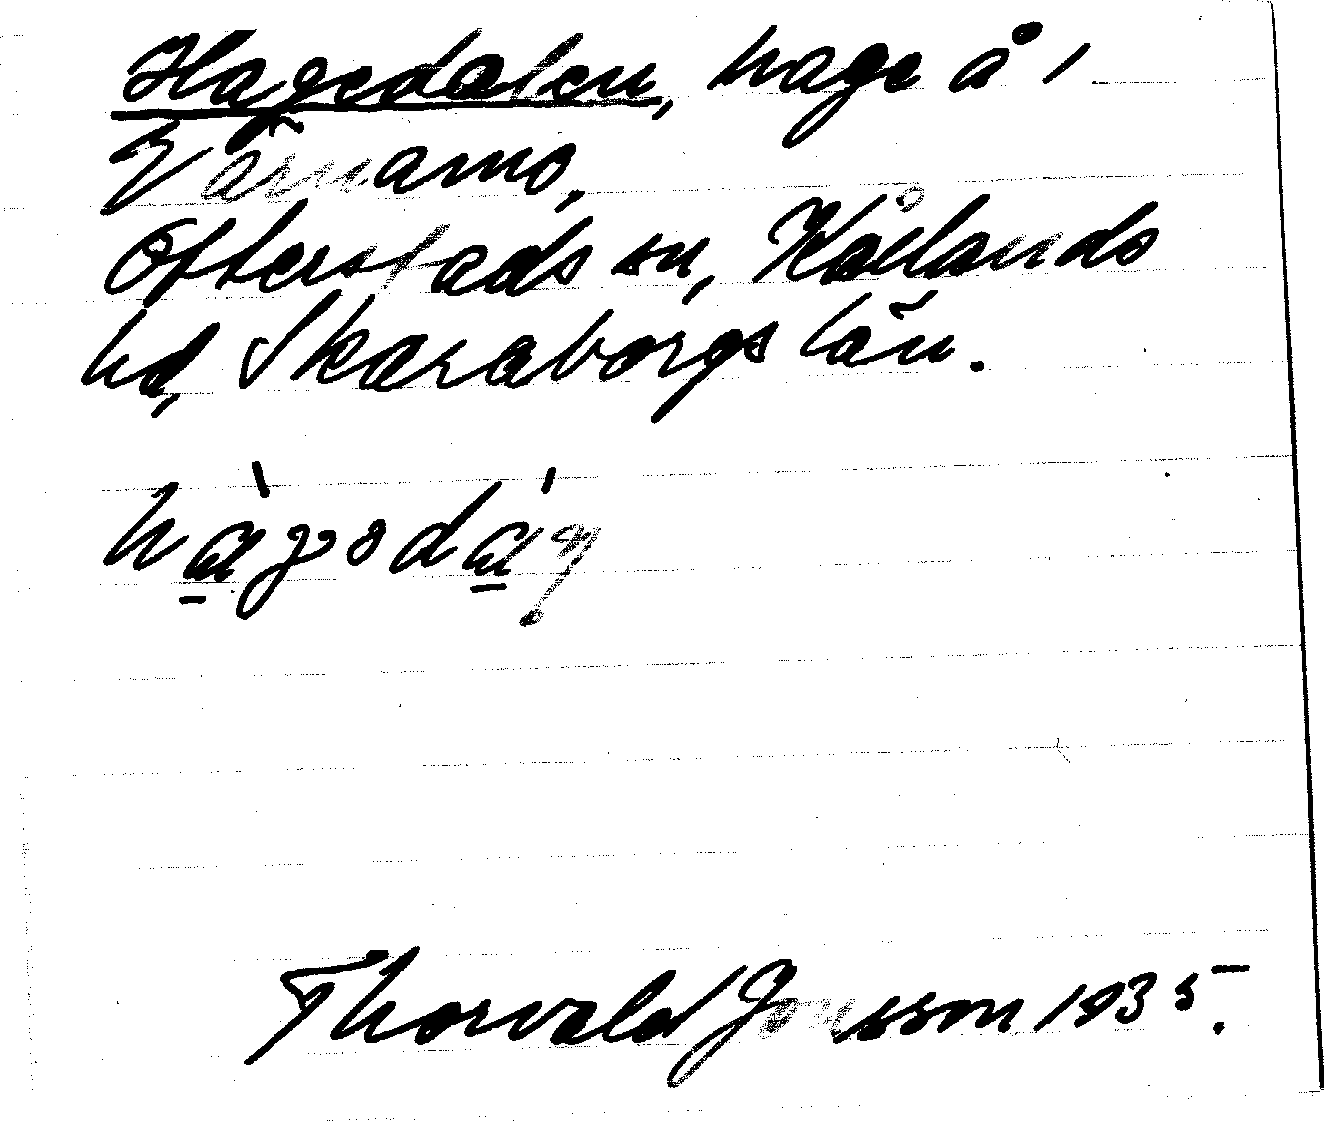 Hagedalen, hage å 1
Värnamo,
Otterstads sn, Kållands
hd, Skaraborgs län.
Thorvald Jonsson 1935.